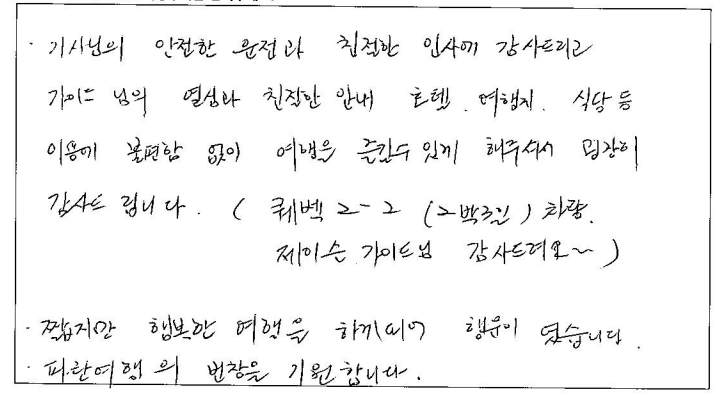 · 기사님의 안전한 운전과 친절한 인사에 감사드리고
가이드 님의 열심과 친절한 안내 호텔. 여행지. 식당 등
이용에 불편함 없이 여행을 즐길수 있게 해주셔서 굉장히
감사드립니다. ( 퀘벡 2-2 (2박3일) 차량.
제이슨 가이드님 감사드려요~ )
· 짧지만 행복한 여행을 하게되어 행운이 였습니다.
· 파란여행의 번창을 기원합니다.